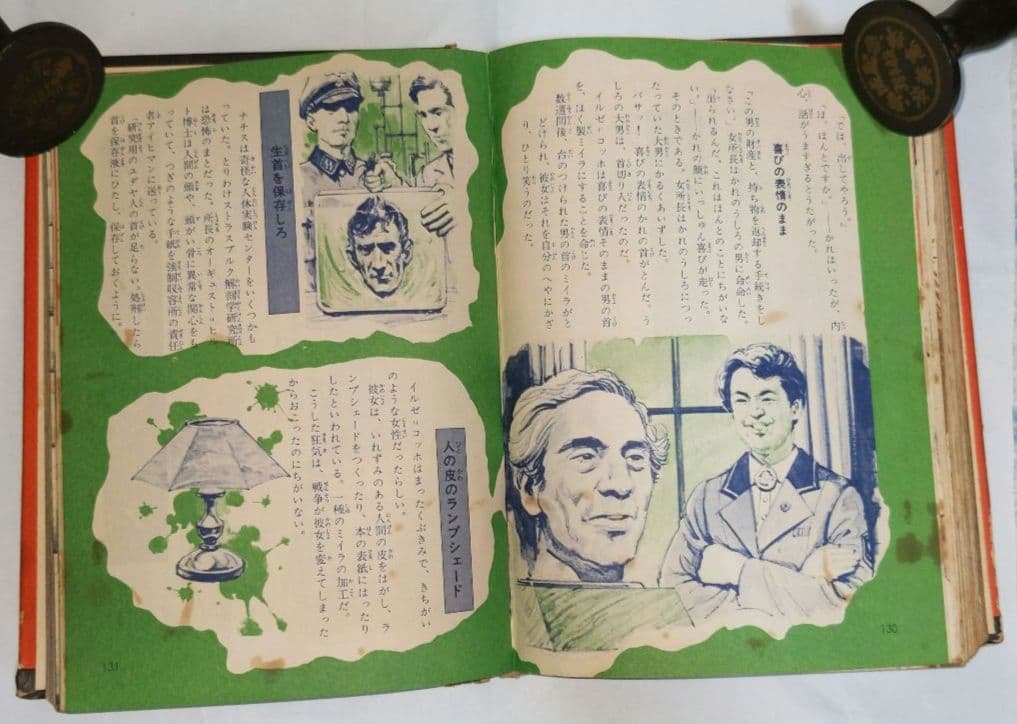 「では、出してやろう。」
「は、ほんとですか。」——かれはいったが、内
心、話がうますぎるとうたがった。
喜びの表情のまま
「この男の財産と、持ち物を返却する手続きをし
なさい。」女所長はかれのうしろの男に命令した。
「出られるんだ、これはほんとのことにちがいな
い。」——かれの顔にいっしゅん喜びが走った。
そのときである。女所長はかれのうしろにつっ
たっていた大男にかるくあいずした。
バサッ！ 喜びの表情のかれの首がとんだ。う
しろの大男は、首切り人だったのだ。
イルゼ＝コッホは喜びの表情そのままの男の首
を、はく製ミイラにすることを命じた。
数週間後、台のつけられた男の首のミイラがと
どけられ、彼女はそれを自分のへやにかざ
り、ひとり笑うのだった。
130
生首を保存しろ
ナチスは奇怪な人体実験センターをいくつかも
っていた。とりわけストラスブルク解剖学研究所
は恐怖のまとだった。所長のオーギュスト＝ヒル
ト博士は人間の頭や、頭がい骨に異常な関心をも
っていて、つぎのような手紙を強制収容所の責任
者アイヒマンに送っている。
「研究用のユダヤ人の首が足らない。処刑したら
首を保存液にひたし、保存しておくように。」
人の皮のランプシェード
イルゼ＝コッホはまったくぶきみで、きちがい
のような女性だったらしい。
彼女は、いれずみのある人間の皮をはがし、ラ
ンプシェードをつくったり、本の表紙にはったり
したといわれている。一種のミイラの加工だ。
こうした狂気は、戦争が彼女を変えてしまった
からおこったのにちがいない。
131